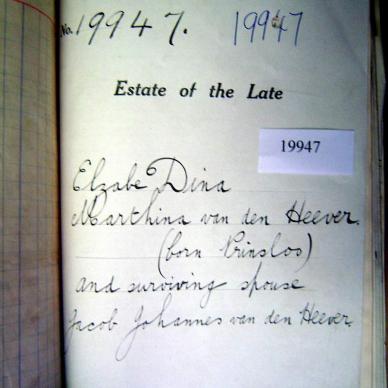 No. 19947. 19947
Estate of the Late
19947
Elzabe Dina
Marthina van den Heever.
(born Prinsloo)
and surviving spouse
Jacob Johannes van den Heever.